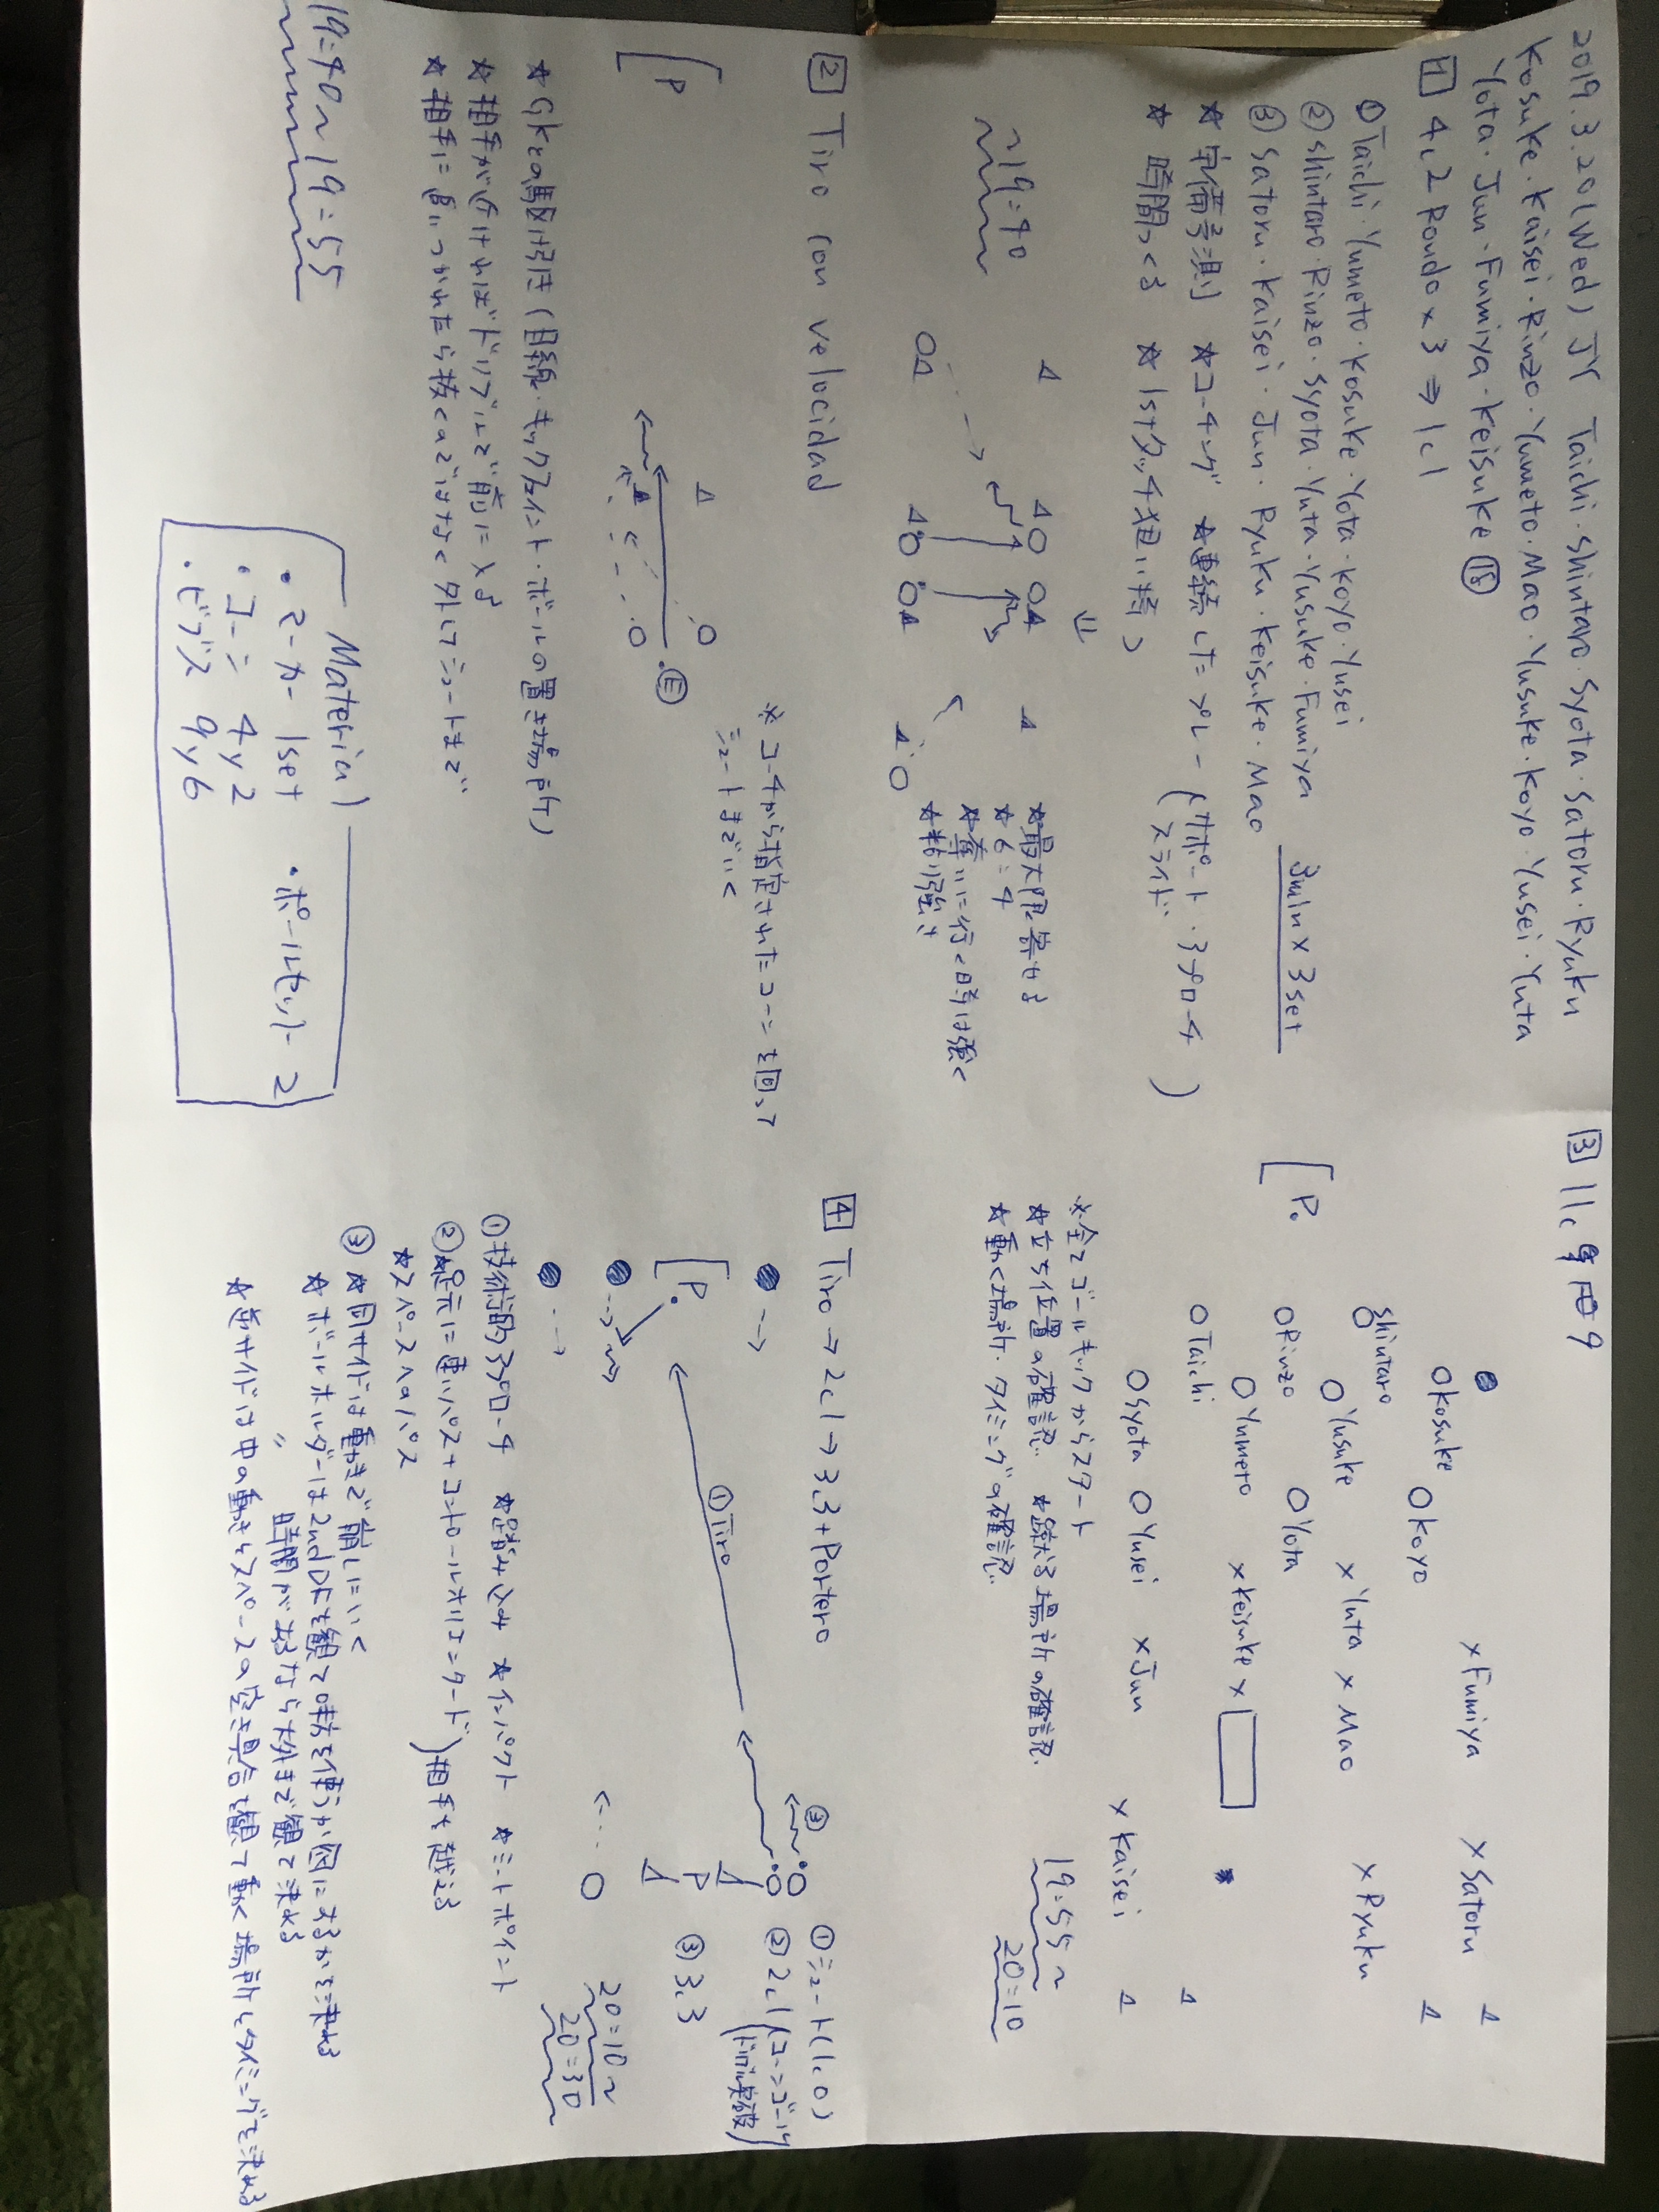 2019.3.20(Wed) JY Taichi・Shintaro・Syota・Satoru・Ryuku
Kosuke・Kaisei・Rinzo・Yumeto・Mao・Yusuke・Koyo・Yusei・Yuta
Yota・Jun・Fumiya・Keisuke ⑱
1 4c2 Rondo × 3 ⇒ 1c1
①Taichi・Yumeto・Kosuke・Yota・Koyo・Yusei
②Shintaro・Rinzo・Syota・Yuta・Yusuke・Fumiya
③Satoru・Kaisei・Jun・Ryuku・Keisuke・Mao
3min × 3set
★準備予測 ★コーチング ★連続したプレー(サポート・アプローチ
スライド)
★時間つくる ★1stタッチ狙い持つ
~19:40
★最大限寄せる
★6:4
★奪いに行く時は強く
★粘り強さ
2 Tiro con velocidad
※コーチから指定されたコーンを回って
シュートまでいく
E
P
★GKとの駆け引き(目線・キックフェイント・ボールの置き場所)
★相手がいればドリブルで前に入る
★相手に追いつかれたら抜くのではなく外してシュートまで
19:40~19:55
Material
・マーカー 1set ・ボールセット 2
・コーン 4y2
・ビブス 9y6
3 11c 9
P
Kosuke
Koyo
×Fumiya
×Satoru
Shintaro
Yusuke
×Yuta
×Mao
×Ryuku
Rinzo
Yota
Yumeto
×Keisuke ×
Taichi
Syota
Yusei
×Jun
×Kaisei
※全てゴールキックからスタート
★立ち位置の確認 ★蹴る場所の確認
★動く場所・タイミングの確認
19:55~
20:10
4 Tiro→2c1→3.3+Portero
P
①Tiro
③
P
①シュート(1.0)
②2c1(コーンゴール
ドリブル突破)
③3.3
20:10~
20:30
①技術的アプローチ ★踏み込み ★インパクト ★ミートポイント
②★足元に速いパス+コントロールオリエンタード)相手を越える
★スペースへのパス
③★同サイドは動きで崩しにいく
★ボールホルダーは2nd DFを観て味方を使うか囮にするかを決める
〃 時間があるなら大外まで観て決める
★逆サイドは中の動きとスペースの空き具合を観て動く場所とタイミングを決める